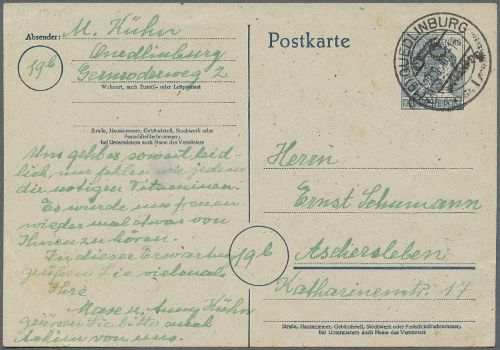 Absender: M. Kühn
Quedlinburg
19b
Gernroderweg 2
Wohnort, auch Zustell- oder Leitpostamt
Straße, Hausnummer, Gebäudeteil, Stockwerk oder
Postschließfachnummer,
bei Untermietern auch Name des Vermieters
Uns geht es soweit leid-
lich, nur fehlen jedem
die nötigen Vitaminen.
Es würde uns freuen
wieder mal etwas von
Ihnen zu hören.
In dieser Erwartung
grüßen Sie vielmals
Ihre
Max u. Anny Kühn
grüßen Sie bitte auch
von uns.
Postkarte
QUEDLINBURG
Herrn
Ernst Schumann
19b
Aschersleben
Katharinenstr. 17
Straße, Hausnummer, Gebäudeteil, Stockwerk oder Postschließfachnummer,
bei Untermietern auch Name des Vermieters